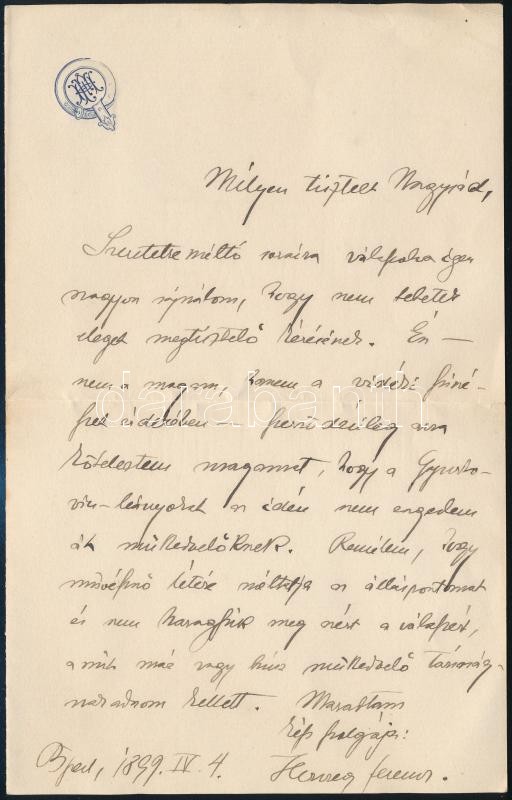 Mélyen tisztelt Nagysád,
Szeretetre méltó soraira válaszolva igen
nagyon sajnálom, hogy nem tehetek
eleget megtisztelő kérésének. Én —
nem a magam, hanem a vidéki színé-
szet érdekében — szerződésileg arra
köteleztem magamat, hogy a Gyurko-
vics-leányokat az idén nem engedem
át műkedvelőknek. Remélem, hogy
művésznő létére méltatja az álláspontomat
és nem haragszik meg azért a válaszért,
a mit már vagy húsz műkedvelő társaság-
nak adnom kellett. Maradtam
kész szolgája:
Bpest, 1899. IV. 4. Herczeg Ferenc.
darabanth